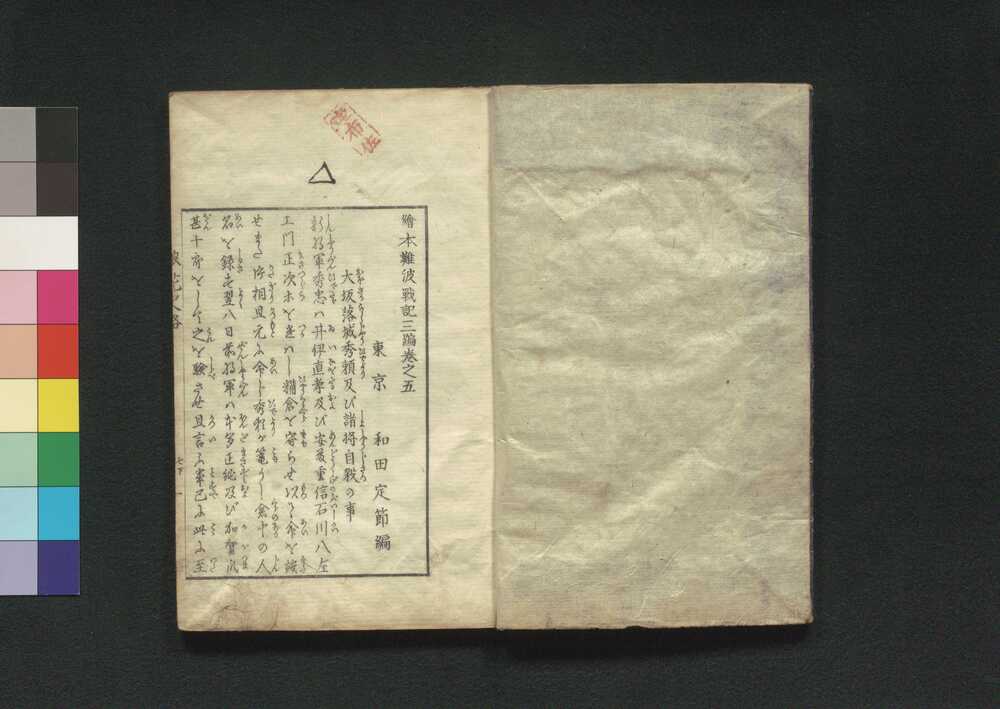 繪本難波戰記三編巻之五
東京　和田定節編
大坂落城秀頼及び諸将自戮の事
新将軍秀忠ハ井伊直孝及び安藤重信石川八左
エ門正次ホを遣ハし糒倉を守らせ以て命を
せまた片桐且元ふ命じ秀頼が篭りし倉中の人
名を録せ翌八日前将軍ハ本多正純及び加賀
甚十郎をして之を驗させ且言ふ事已に此ふ至